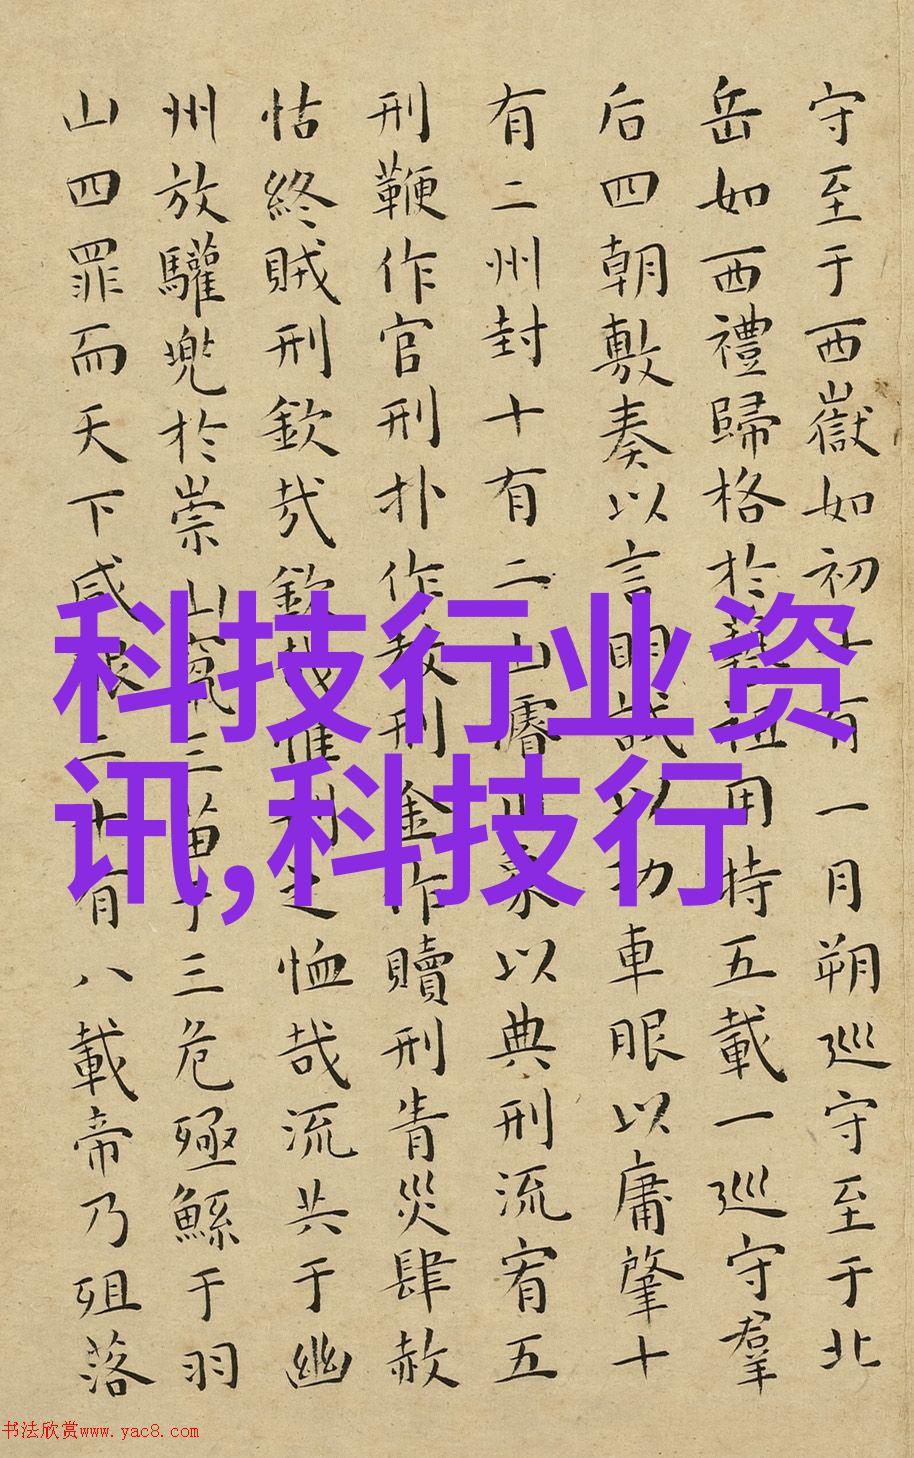 守至于西嶽如初十有一月朔巡守至于北
岳如西禮歸格於藝祖用特五載一巡守羣
后四朝敷奏以言明試以功車眼以庸肇十
有二州封十有二山濬川象以典刑流宥五
刑鞭作官刑扑作教刑金作贖刑眚災肆赦
怙終賊刑欽哉欽哉惟刑之恤哉流共于幽
州放驩兜於崇山竄三苗于三危殛鯀于羽
山四罪而天下咸服二十有八載帝乃殂落
科技行业资
讯,科技行
书法欣赏www.yac8.com